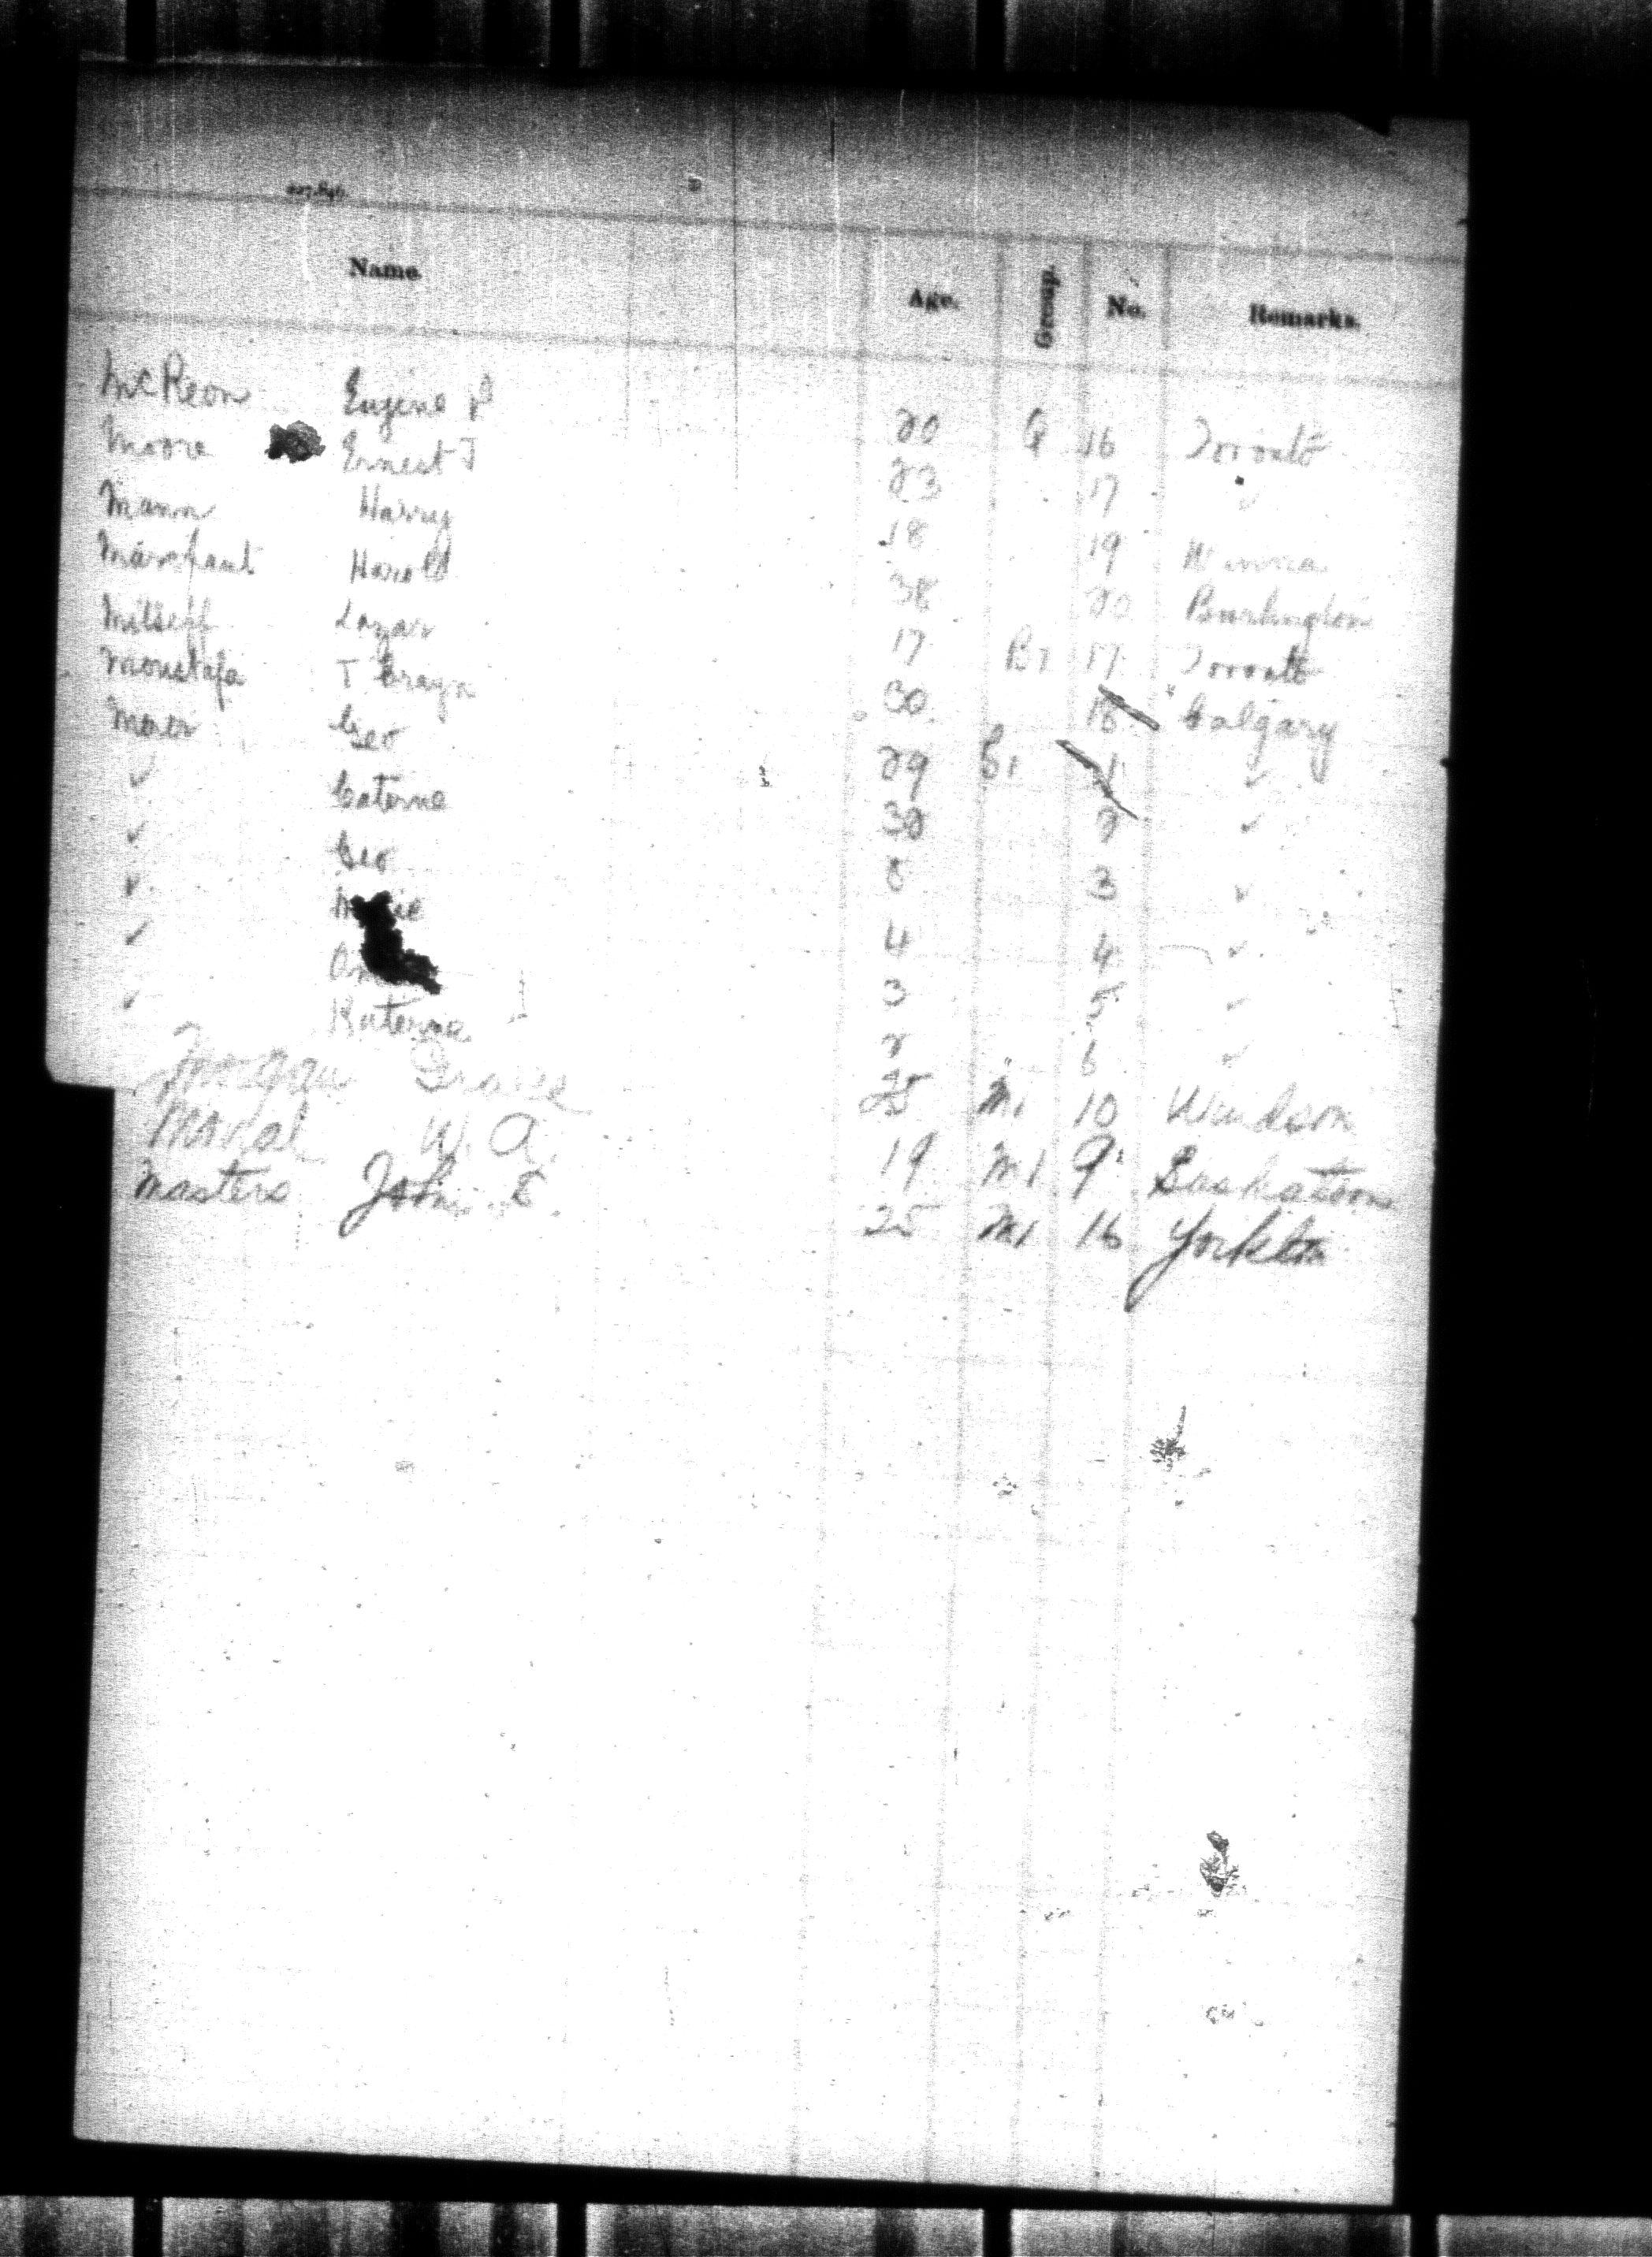 227,846.
Name. Age. Group. No. Remarks.
McKeon Eugene P 20 G 16 Toronto
Moore Ernest J 23 17 ✓
Mann Harry 18 19
Marchant Harold 38 20 Burlington
Lazar 17 B7 17 Toronto
Moustafa T 30 18 Calgary
Geo 29 S1 1 ✓
✓ Caterna 30 2 ✓
✓ Geo 8 3 ✓
✓ 4 4 ✓
✓ 3 5 ✓
✓ Katerina 2 6 ✓
Morgan 25 M1 10 Windsor
W. A. 19 M1 9 Saskatoon
Masters John E. 25 M1 16 Yorkton